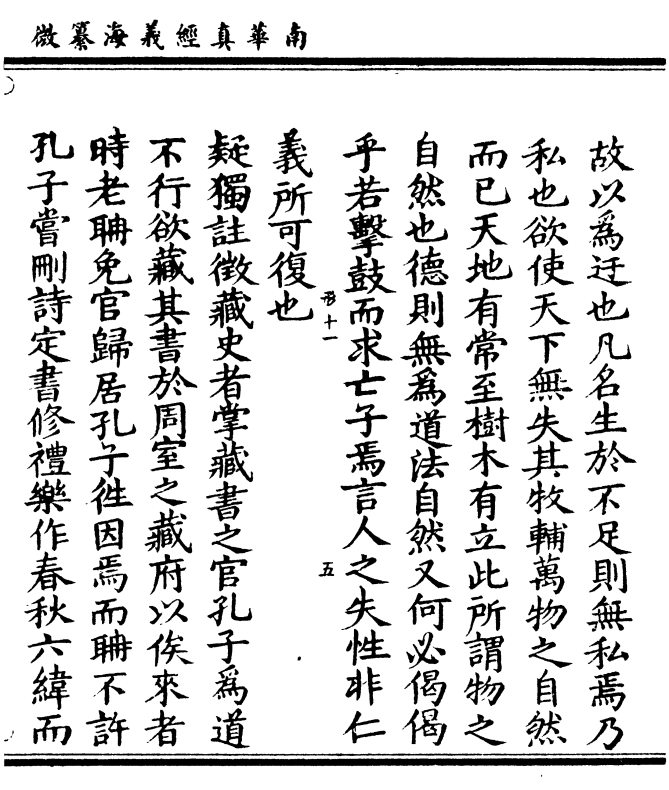 南華真經義海纂微
故以爲迂也凡名生於不足則無私焉乃
私也欲使天下無失其牧輔萬物之自然
而已天地有常至樹木有立此所謂物之
自然也德則無爲道法自然又何必偈偈
乎若擊鼓而求亡子焉言人之失性非仁
形十一
五
義所可復也
疑獨註徵藏史者掌藏書之官孔子爲道
不行欲藏其書於周室之藏府以俟來者
時老聃免官歸居孔子徃因焉而聃不許
孔子嘗刪詩定書修禮樂作春秋六緯而